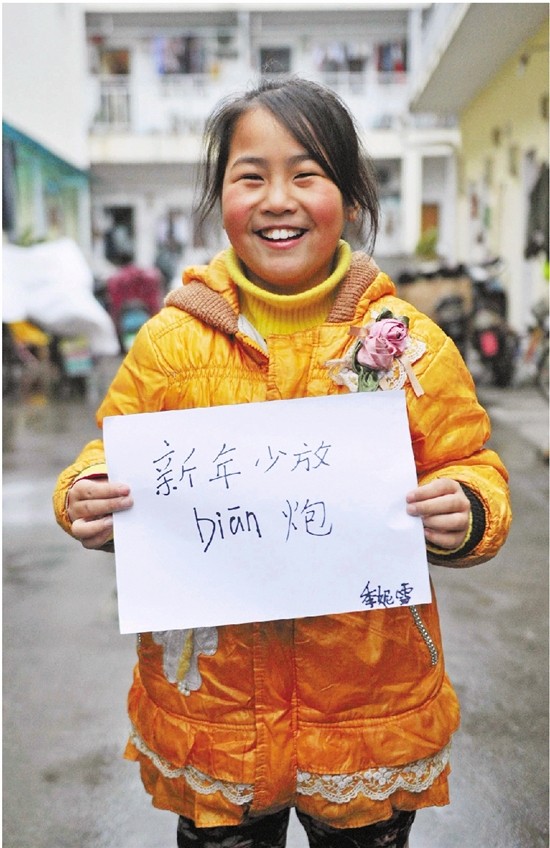 新年少放
biān 炮
季妮雪